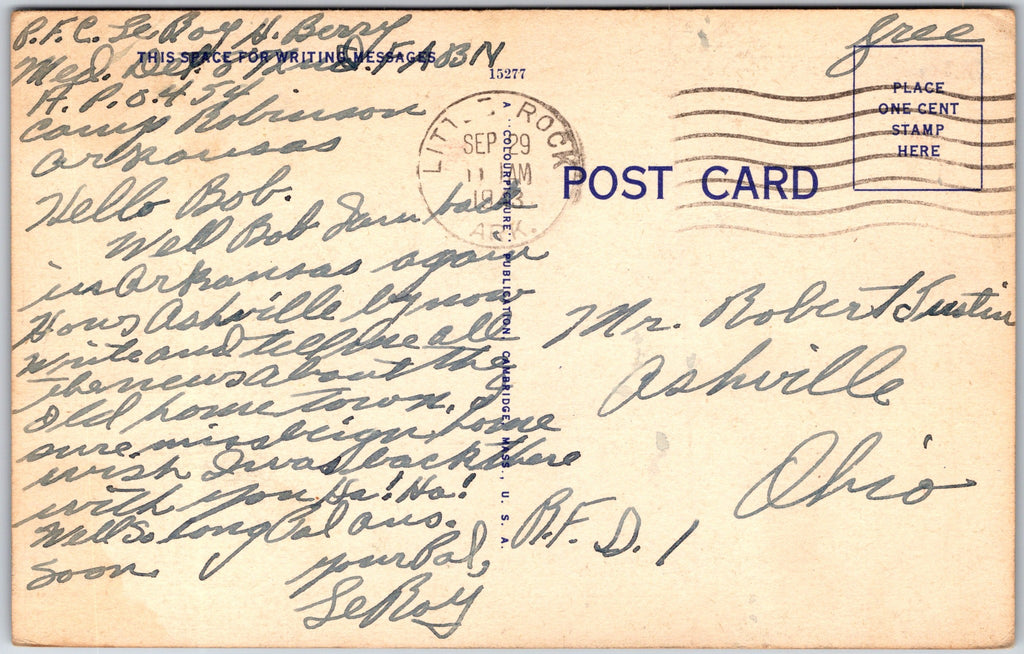 P.F.C. LeRoy H. Berry
THIS SPACE FOR WRITING MESSAGES
Med. Det. F A B N
A.P.O. 454
Camp Robinson
Arkansas
Hello Bob.
Well Bob I am back
in Arkansas again
Hows Ashville by now
write and tell me all
the news about the
old home town. I
sure miss beign home
wish I was back there
with you Ha! Ha!
Well So Long Pal ans.
soon
your Pal,
LeRoy
15277
A "COLOURPICTURE" PUBLICATION, CAMBRIDGE, MASS., U. S. A.
LITTLE ROCK
SEP 29
11 AM
1943
ARK.
POST CARD
free
PLACE
ONE CENT
STAMP
HERE
Mr. Robert Justin
Ashville
Ohio
R.F.D. 1